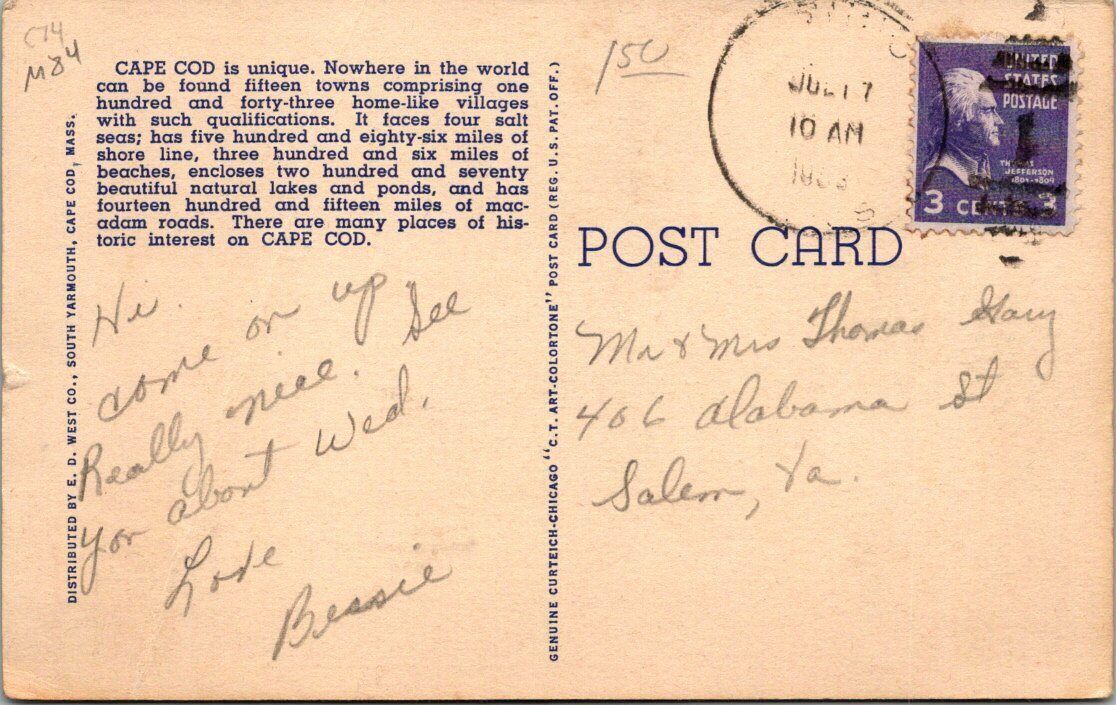 C74
M84
CAPE COD is unique. Nowhere in the world
can be found fifteen towns comprising one
hundred and forty-three home-like villages
with such qualifications. It faces four salt
seas; has five hundred and eighty-six miles of
shore line, three hundred and six miles of
beaches, encloses two hundred and seventy
beautiful natural lakes and ponds, and has
fourteen hundred and fifteen miles of mac-
adam roads. There are many places of his-
toric interest on CAPE COD.
DISTRIBUTED BY E. D. WEST CO., SOUTH YARMOUTH, CAPE COD, MASS.
Hi.
come on up.
Really nice. See
you about Wed.
Love
Bessie
GENUINE CURTEICH-CHICAGO "C.T. ART-COLORTONE" POST CARD (REG. U.S. PAT. OFF.)
150
JUL 17
10 AM
UNITED
STATES
POSTAGE
THOMAS
JEFFERSON
1801-1809
3 CENTS 3
POST CARD
Mr & Mrs Thomas Gary
406 Alabama St
Salem, Va.